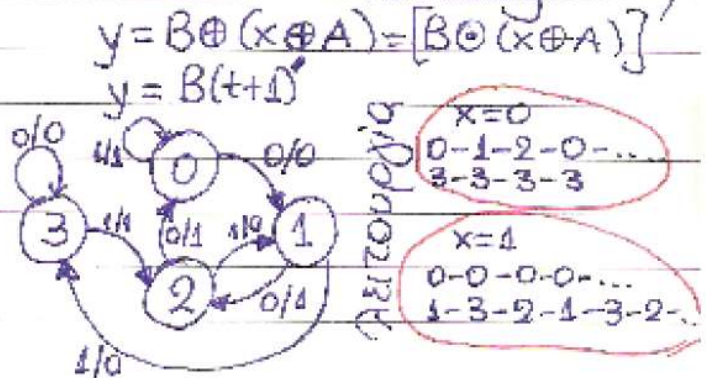 y = B⊕(x⊕A) = [B⊙(x⊕A)]'
y = B(t+1)'
0/0
1/1
0
0/0
3
1/1
0/1
1/0
1
2
0/1
1/0
Λειτουργία
x=0
0-1-2-0-...
3-3-3-3
x=1
0-0-0-0-...
1-3-2-1-3-2-..